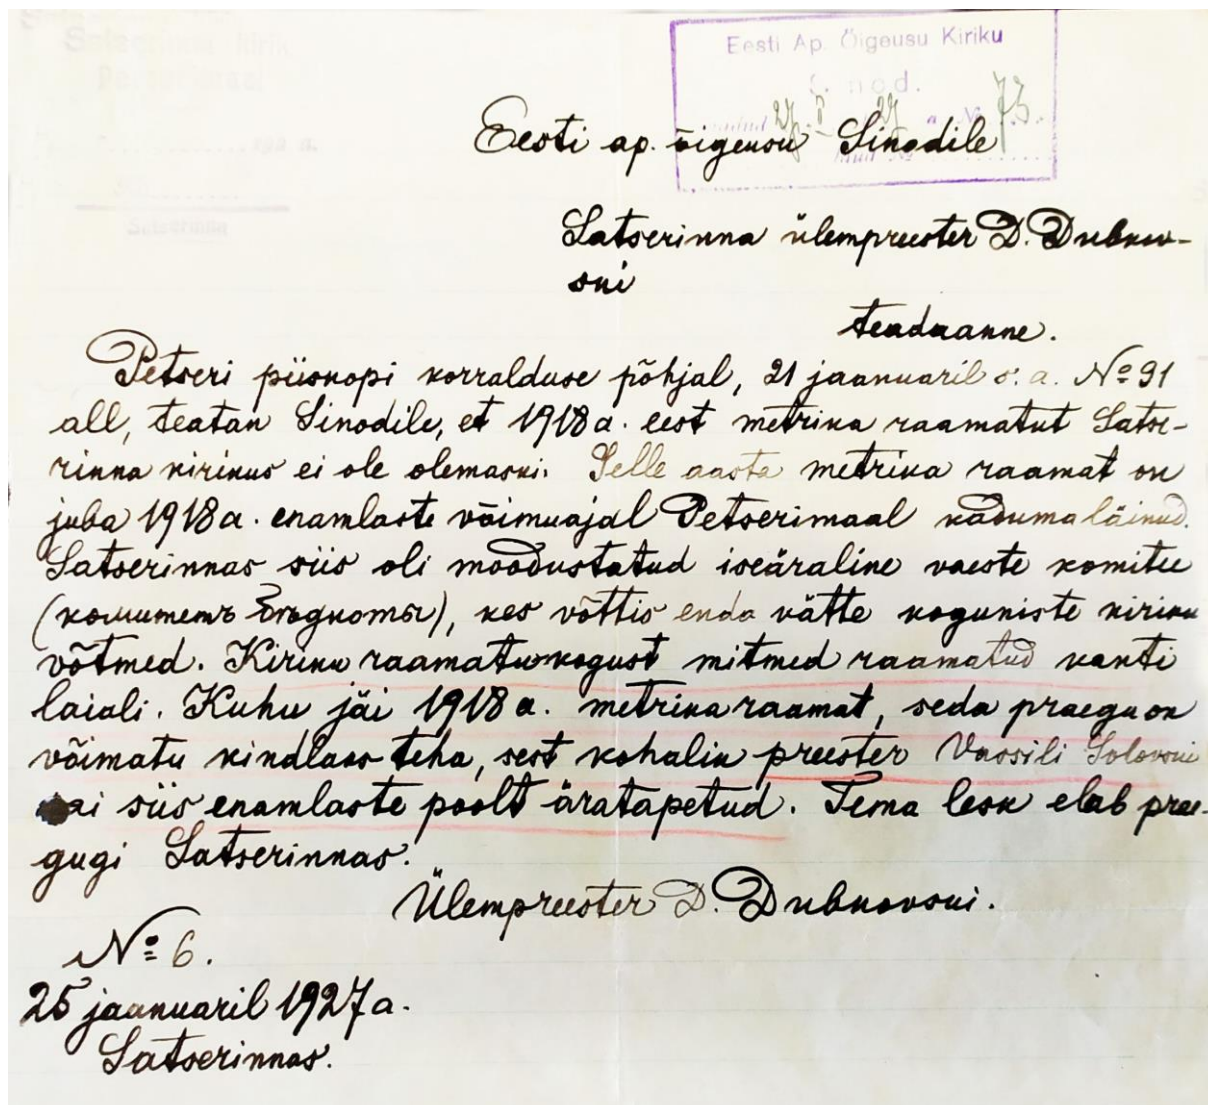 Satserinna kirik
Eesti Ap. Õigeusu Kiriku
27. I 27 a. № 73
Eesti ap. õigeusu Sinodile
Satserinna ülempreester D. Dubkov-
ski
teadaanne.
Petseri piiskopi korralduse põhjal, 21 jaanuaril s. a. № 91
all, teatan Sinodile, et 1918 a. eest metrika raamatut Satse-
rinna kirikus ei ole olemaski. Selle aasta metrika raamat on
juba 1918 a. enamlaste võimuajal Petserimaal kaduma läinud.
Satserinnas siis oli moodustatud iseäraline vaeste komitee
(комитетъ бѣдноты), kes võttis enda kätte koguniste kiriku
võtmed. Kiriku raamatukogust mitmed raamatud kanti
laiali. Kuhu jäi 1918 a. metrika raamat, seda praegu on
võimatu kindlaks teha, sest kohalik preester Vassili Solovski
sai siis enamlaste poolt äratapetud. Tema lesk elab prae-
gugi Satserinnas.
Ülempreester D. Dubkovski.
№ 6.
25 jaanuaril 1927 a.
Satserinnas.